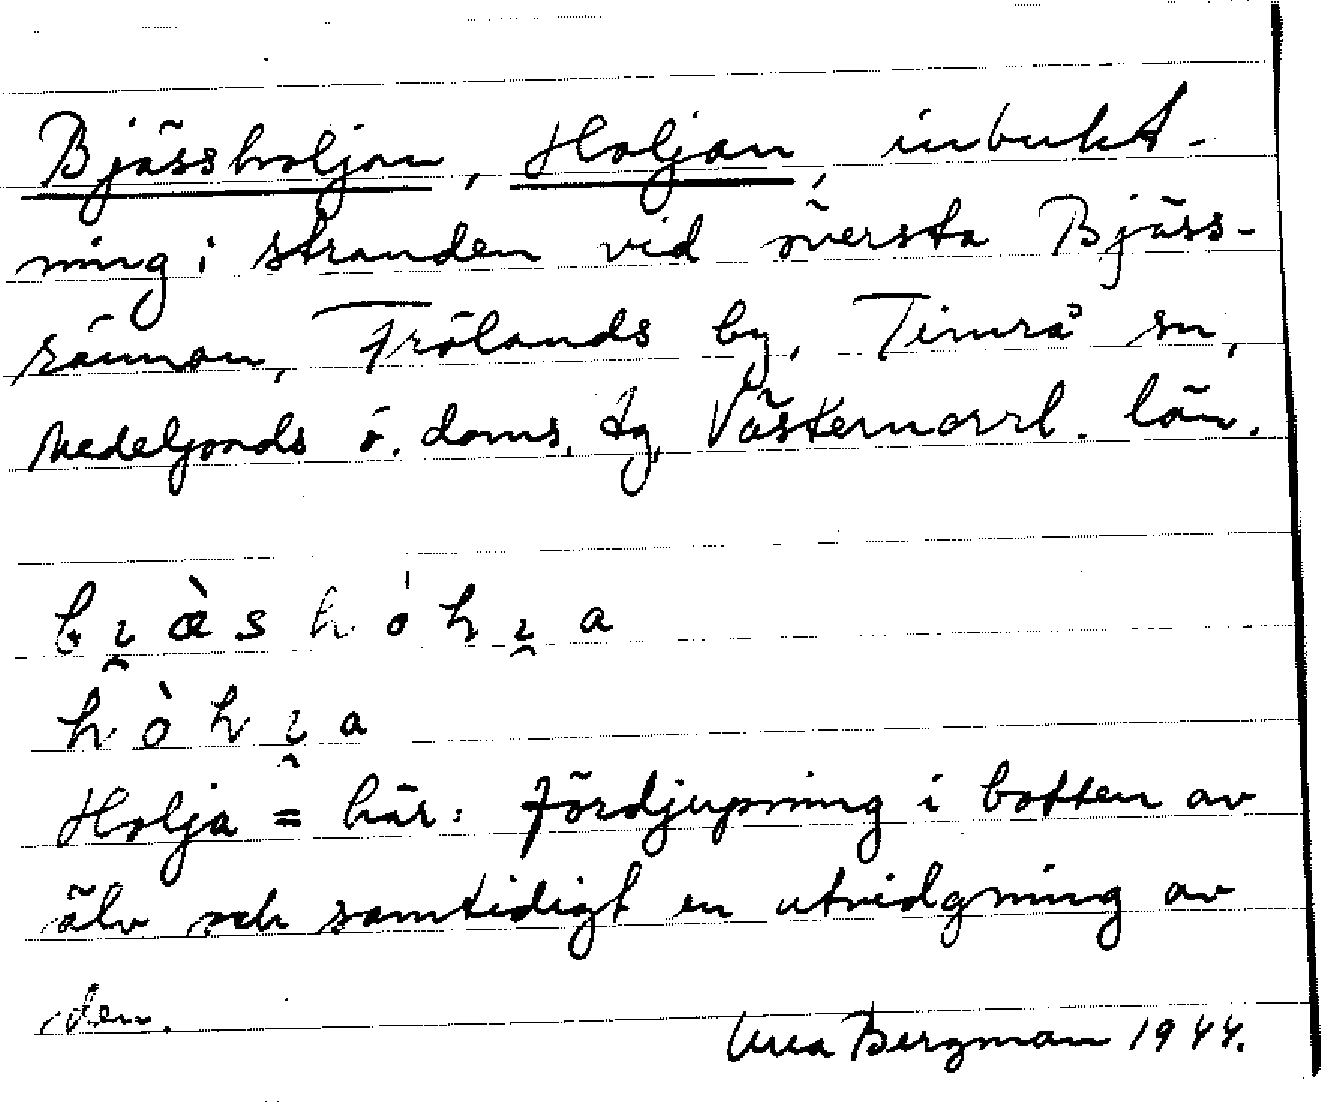 Bjässholjan, Holjan, inbukt-
ning i stranden vid översta Bjäss-
rännan, Frölands by, Timrå sn,
Medelpads ö. doms. tg, Västernorrl. län.
Holja = här: fördjupning i botten av
älv och samtidigt en utvidgning av
den.
Bergman 1944.